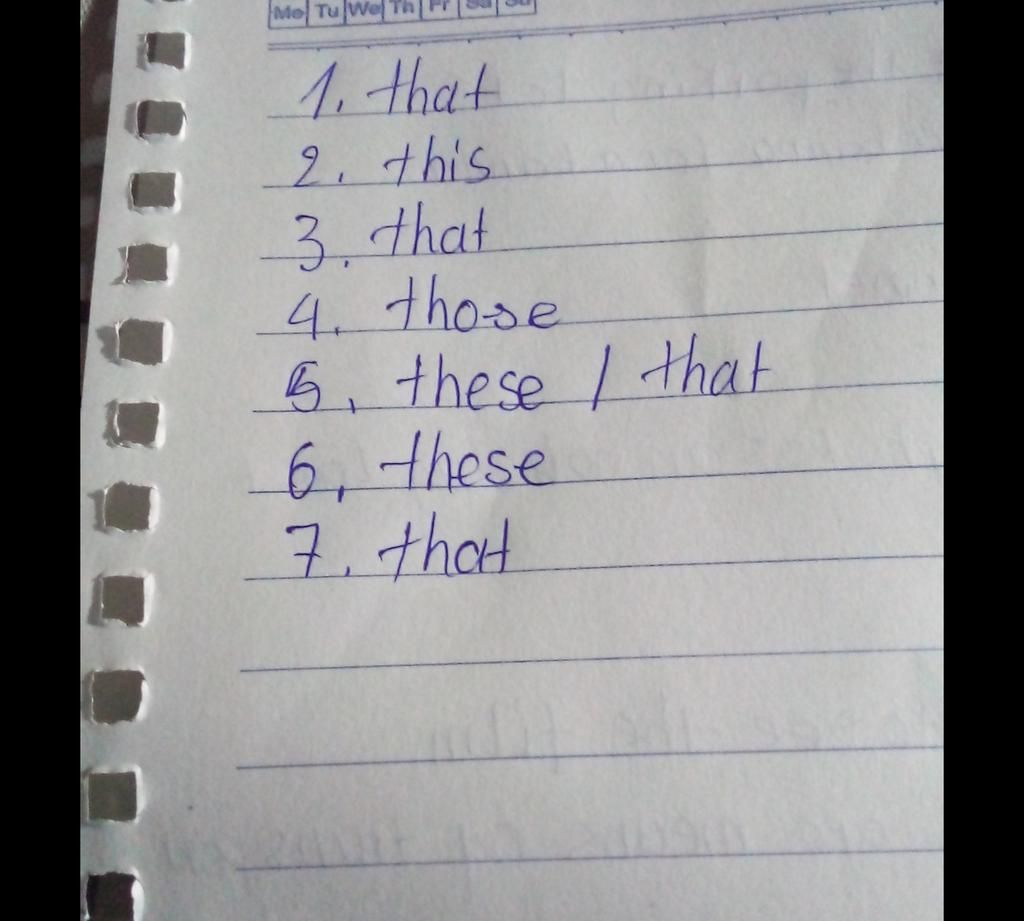 Mo Tu We Th Fr Sa Su
1. that
2. this
3. that
4. those
5. these / that
6. these
7. that